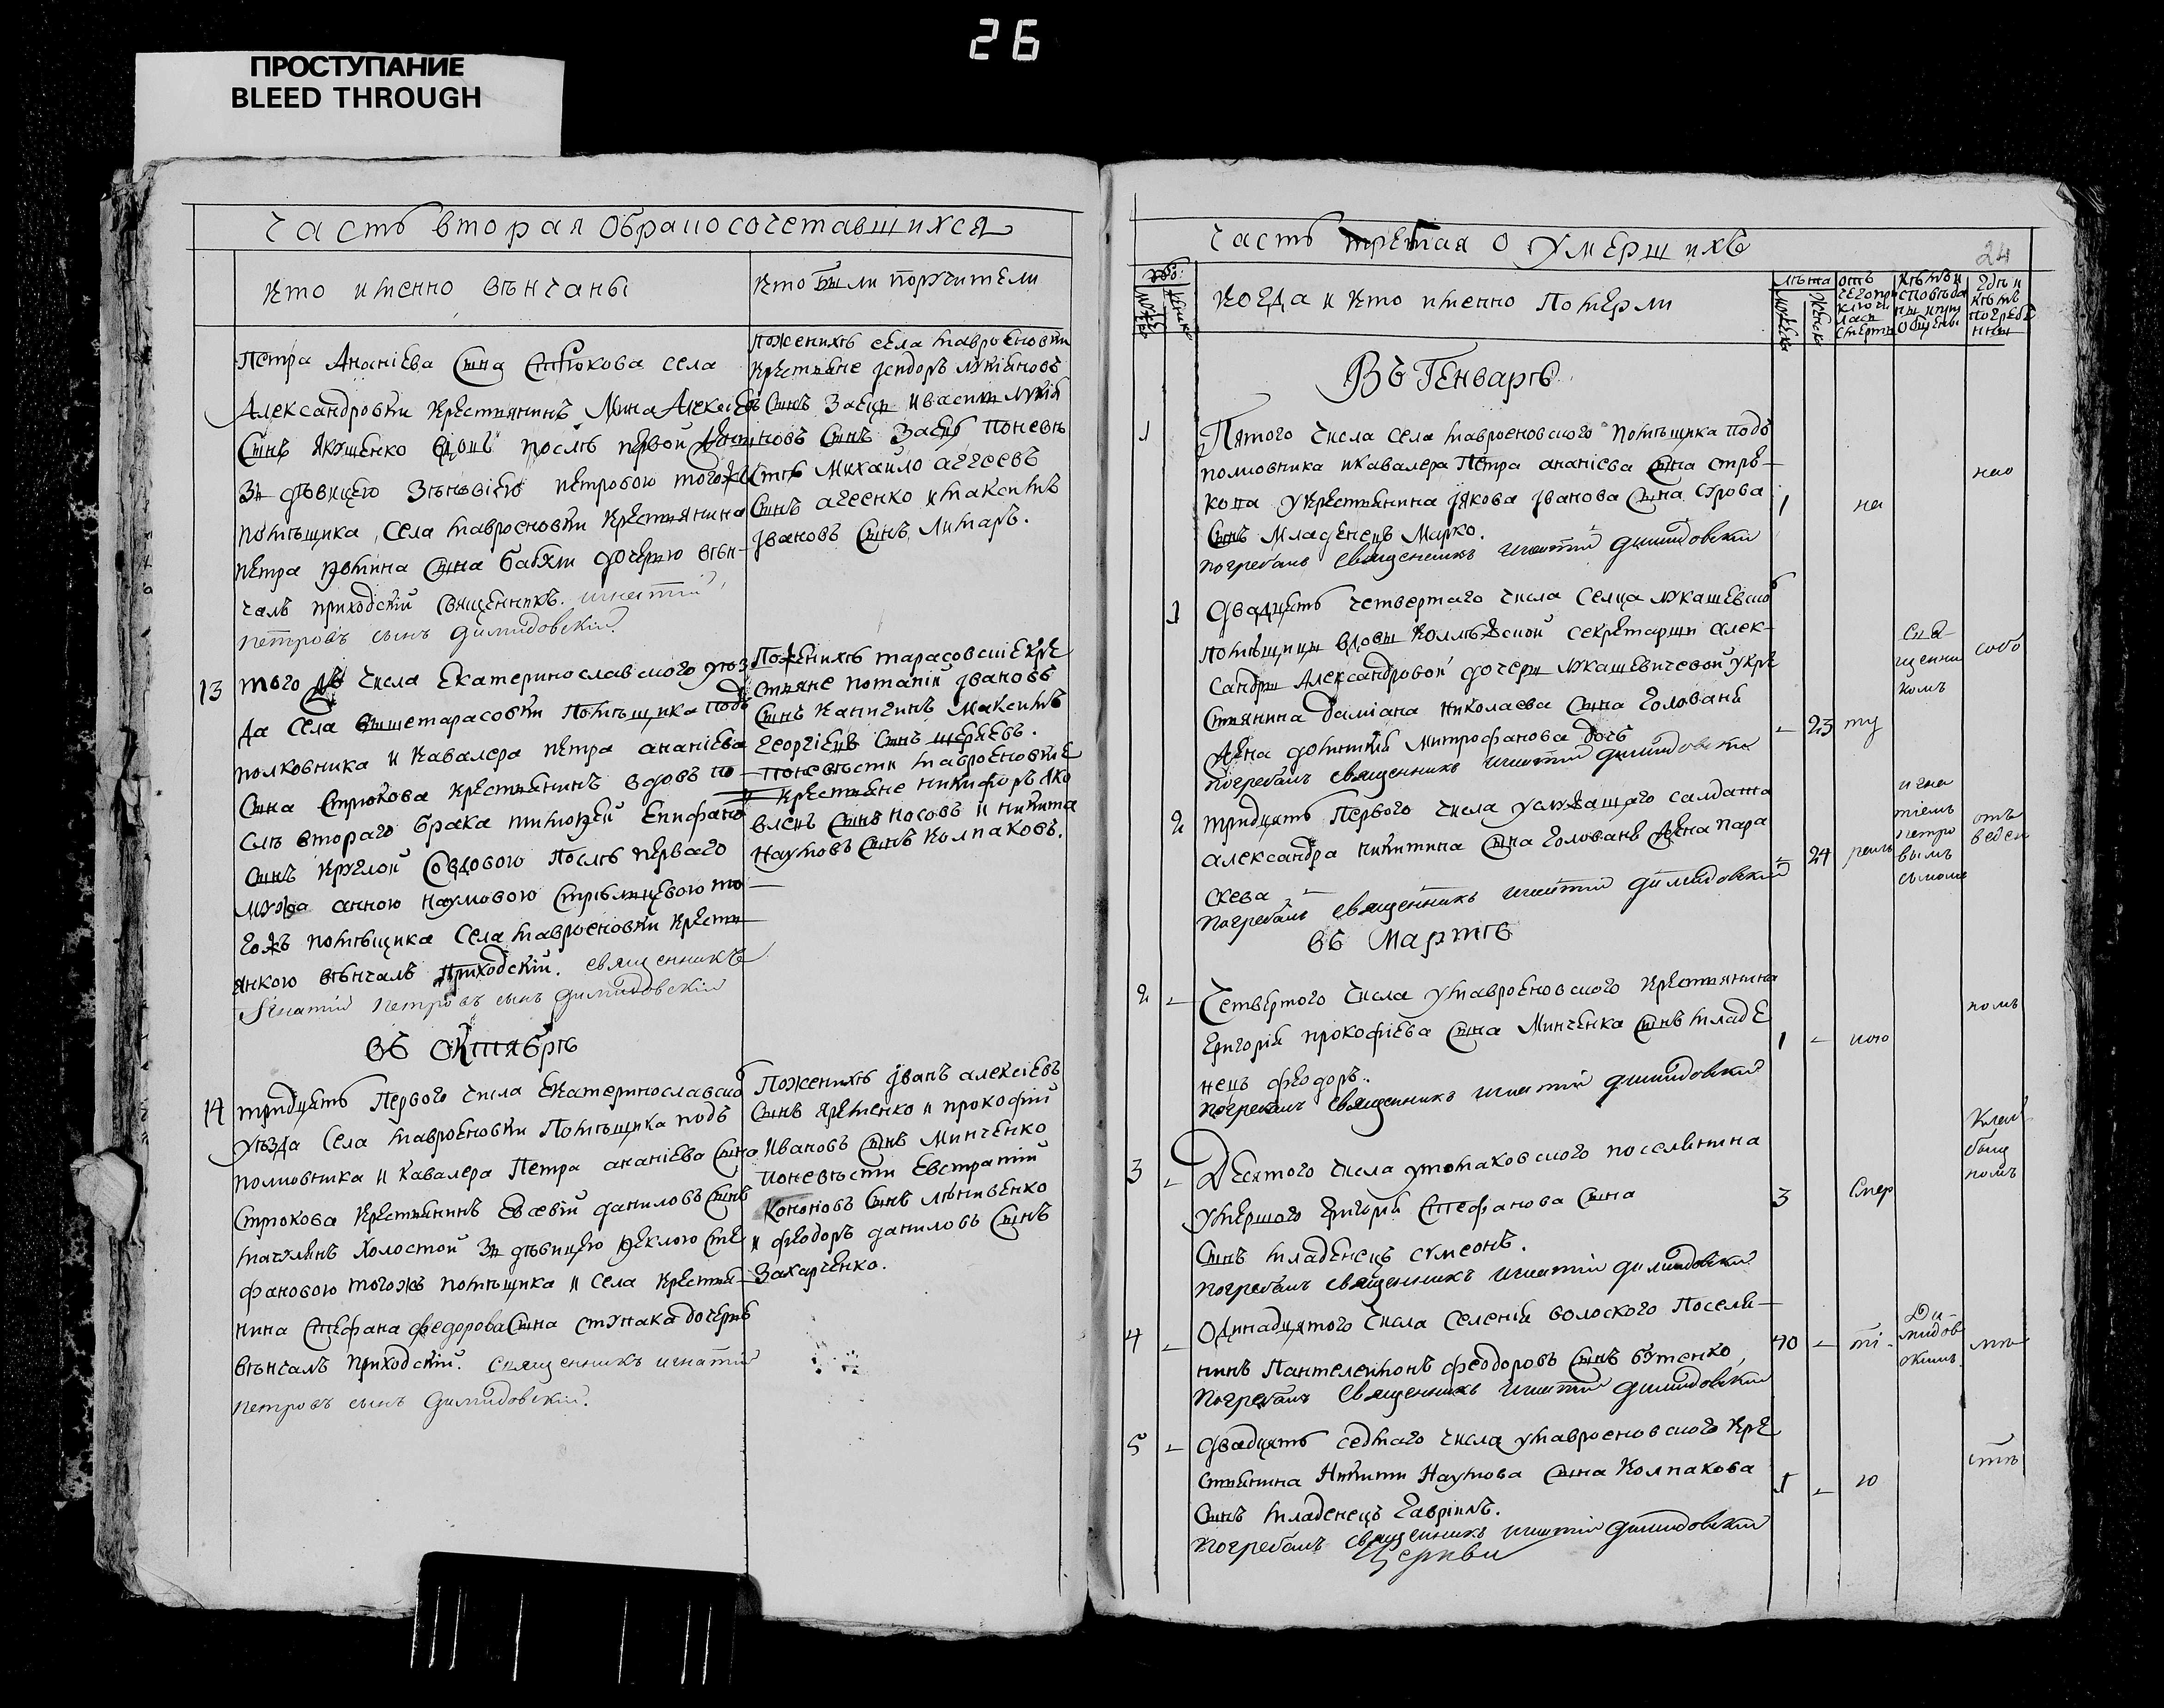 26
ПРОСТУПАНИЕ
BLEED THROUGH
Часть вторая обрачносочетавшихся
Кто именно вѣнчаны
Кто были поручители
Петра Ананіева сына Стрюкова села
Александровки крестьянинъ Мина Алексѣевъ
сынъ Якошенко вдовъ послѣ первой жены
зъ дѣвицею Зѣновіею Петровою тогожъ
помѣщика села мавроеновки крестьянина
Петра сына дочерю вѣн-
чалъ приходскій священникъ игнатій
петровъ сынъ димидовскій.
Поженихѣ села мавроеновки
крестьяне лукіяновъ
сынъ Заецъ и васили лукія
новъ сынъ Заецъ поневѣ
стѣ Михайло аггеевъ
сынъ агеенко и максимъ
Јвановъ сынъ Литаръ.
13
того числа Екатеринославского уѣз
да села вышетарасовки помѣщика подъ
полковника и кавалера петра ананіева
сына Стрюкова крестьянинъ вдовъ по-
слѣ втораго брака тимофей Епифано
сынъ круглой совдовою послѣ перваго
мужа анною наумовою то-
гожъ помѣщика села мавроеновки кресть
янкою вѣнчалъ приходскій. священникъ
Јгнатій Петровъ сынъ димидовскій
Поженихѣ тарасовскіе кре
стьяне потапій Јвановъ
сынъ Каничинъ Максимъ
Георгіевъ сынъ
поневѣсти мавроеновкіе
крестьяне никифоръ яко
влевъ сынъ носовъ и никита
Наумовъ сынъ Колпаковъ.
въ октябрѣ
14
тридцять первого числа Екатеринославско
уѣзда села мавроеновки помѣщика подъ
полковника и кавалера Петра ананіева сына
Стрюкова крестьянинъ Евсевій даниловъ сынъ
холостой зъ дѣвицею феклою сте
фановою тогожъ помѣщика и села крестья-
нина Стефана федорова сына ступака дочерю
вѣнчалъ приходскій. священникъ игнатій
петровъ сынъ димидовскій.
Поженихѣ Јванъ алексіевъ
сынъ яременко и прокофій
Ивановъ сынъ Минченко
поневѣсти Евстратій
Кононовъ сынъ лѣнивенко
и феодоръ даниловъ сынъ
Захарченко.
Часть третая о умерщихъ
24
Когда и кто именно померли
лѣта
Въ Генварѣ
1
Пятого числа села мавроеновского помѣщика подъ
полковника и кавалера Петра ананіева сына стрю-
кова укрестьянина Јякова Јванова сына
сынъ младенецъ Марко.
погребалъ священникъ игнатій димидовскій
1
на
нао
1
двадцять четвертаго числа селца лукашевско
помѣщицы вдовы коллѣжской секретарши алек-
сандры Александровой дочери лукашевичевой укре
стьянина даміана николаева сына головани
жена домникія митрофанова дочь
погребалъ священникъ игнатій димидовскій
-
23
ту
свя-
щенни
комъ
собо
2
тридцять первого числа услужащаго салдата
александра никитина сына головане жена пара
скева
погребалъ священникъ игнатій димидовскій
24
игна
тіемъ
петро
вымъ
сыномъ
отъ
веден
въ Мартѣ
2 -
Четвертого числа умавроеновского крестьянина
григорія прокофіева сына Минченка сынъ младе
нецъ феодоръ.
погребалъ священникъ игнатій димидовскій
1 -
ною
номъ
3 -
Десятого числа поселянина
умершого григорія стефанова сына
сынъ младенецъ сумеонъ.
погребалъ священникъ игнатій димидовскій
3
смер
клад
бищ
номъ
4 -
Одинадцятого числа селенія волоского посели-
нинъ Пантелеймонъ феодоровъ сынъ бутенко
погребалъ священникъ игнатій димидовскій
40 -
ті-
Ди-
мидов
скимъ
мѣ
5 -
двадцять седмаго числа умавроеновского кре
стьянина Никити Наумова сына Колпакова
сынъ младенецъ Гавріилъ.
погребалъ священникъ игнатій димидовскій
Церкви
1 -
ю
стѣ